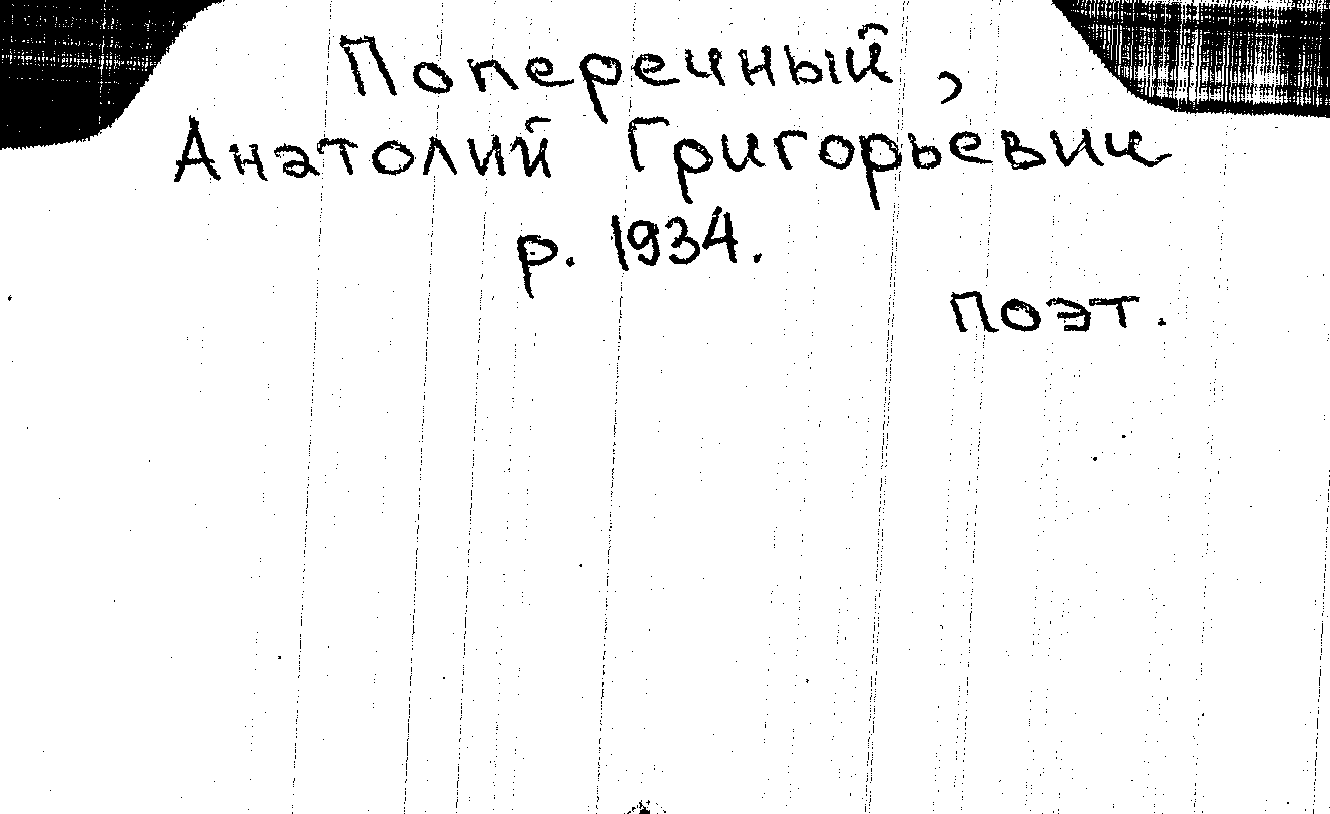 Поперечный,
Анатолий Григорьевич
р. 1934.
поэт.